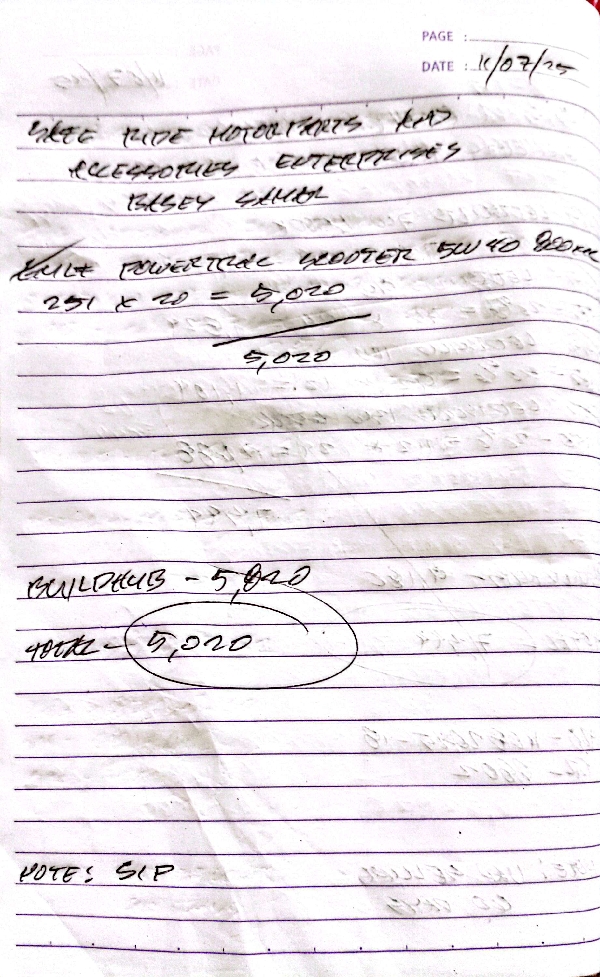 PAGE :
DATE : 11/07/25
SAFE RIDE MOTORPARTS AND
ACCESSORIES ENTERPRISES
BASEY SAMAR
POWERTRAC SCOOTER 5W40 800ML
251 X 20 = 5,020
5,020
BUILDHUB - 5,020
TOTAL - 5,020
NOTE: SIP